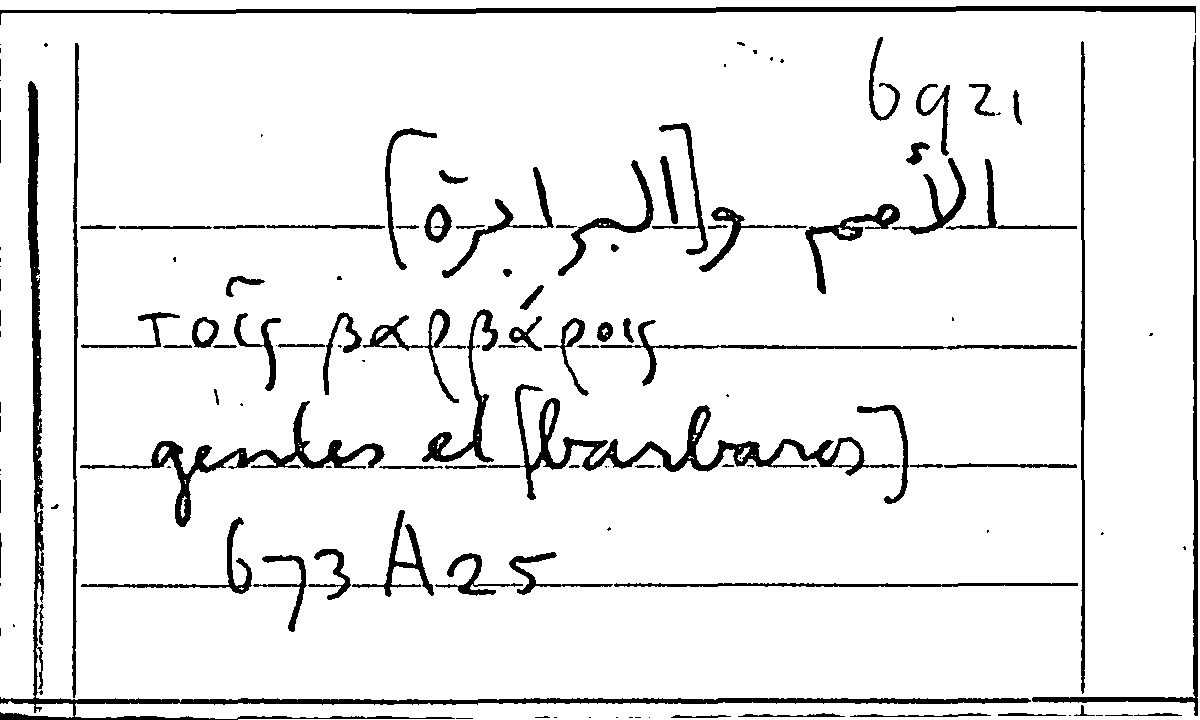 6921
الأمم و[البرابرة]
τοῖς βαρβάροις
gentes et [barbaros]
673 A 25